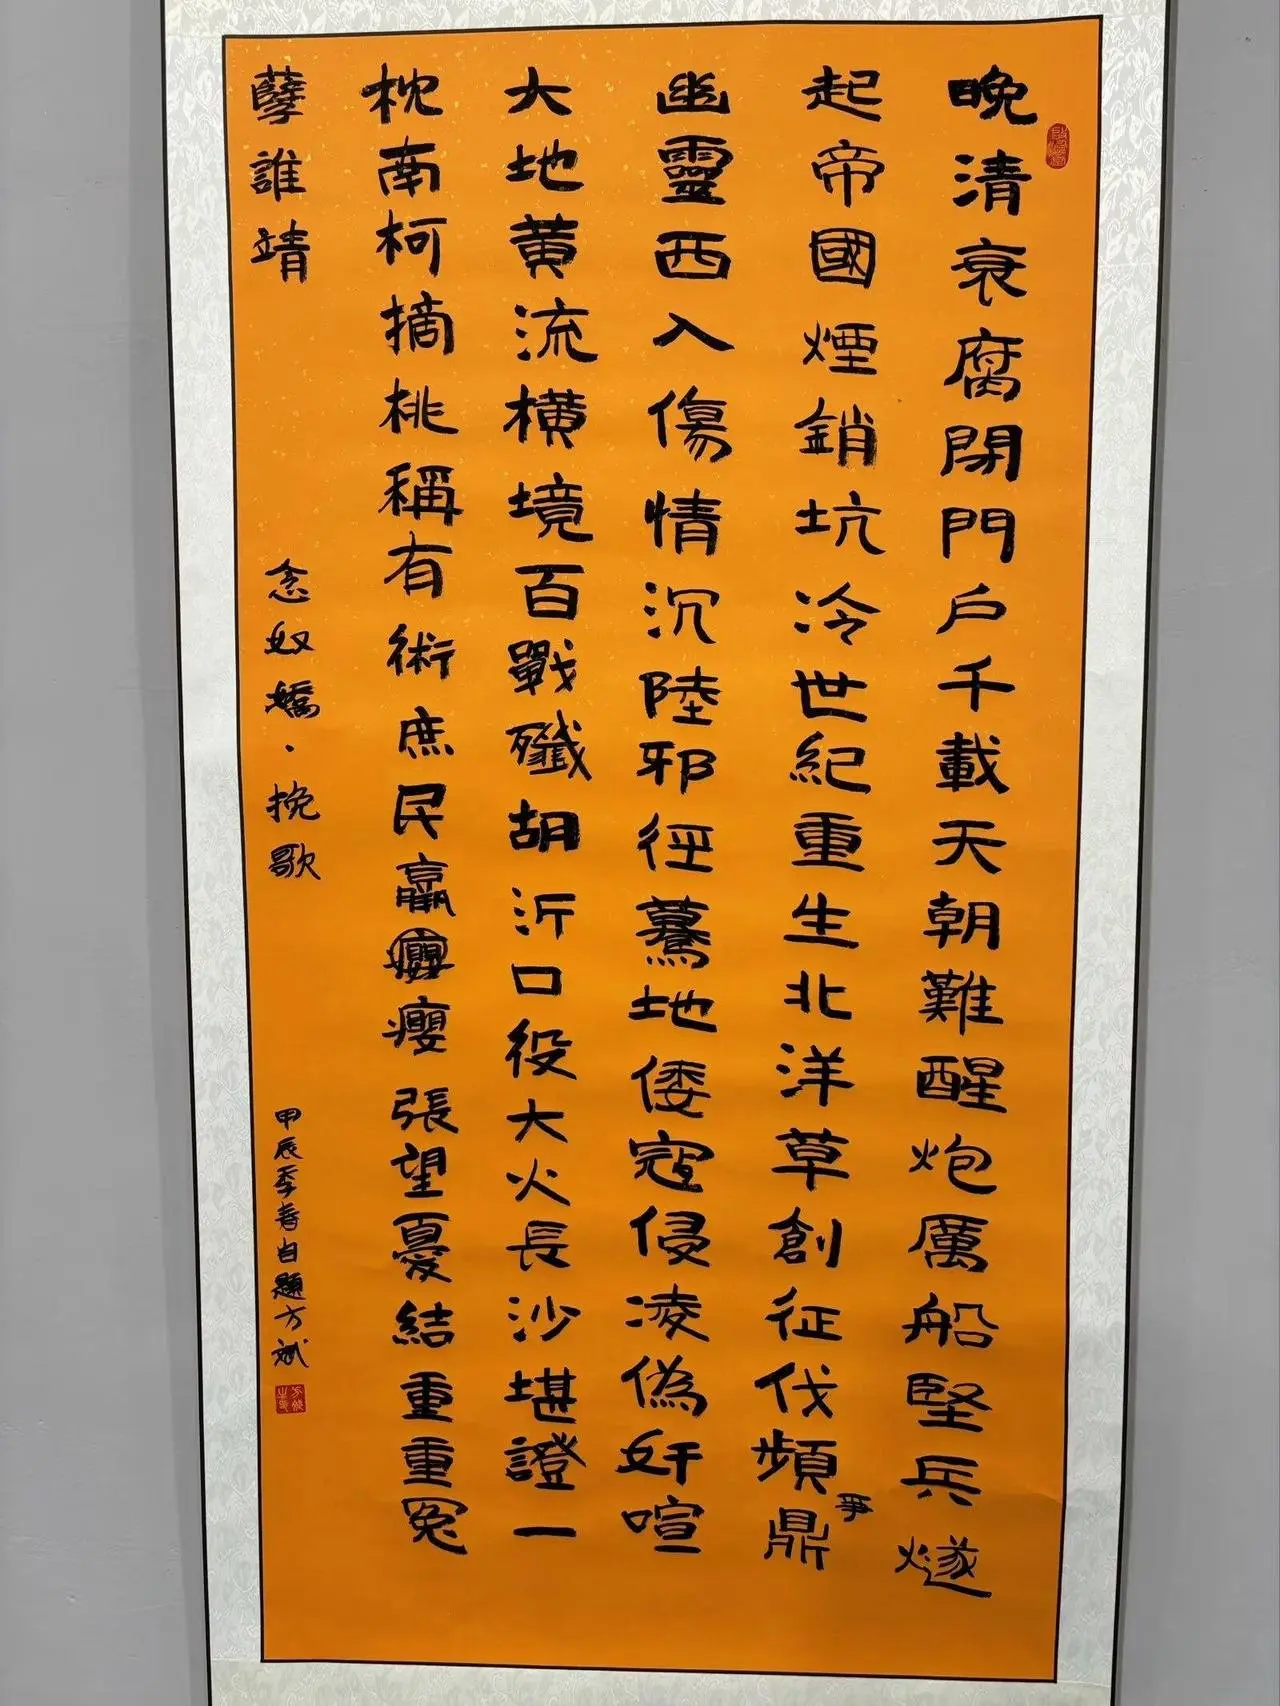 晚清衰腐閉門戶千載天朝難醒炮厲船堅兵燧
起帝國煙銷坑冷世紀重生北洋草創征伐頻爭鼎
幽靈西入傷情沉陸邪徑驀地倭寇侵凌偽奸喧
大地黃流橫境百戰殲胡沂口役大火長沙堪證一
枕南柯摘桃稱有術庶民贏癭癭張望憂結重重冤
孽誰靖
念奴嬌·挽歌
甲辰季春自題方斌